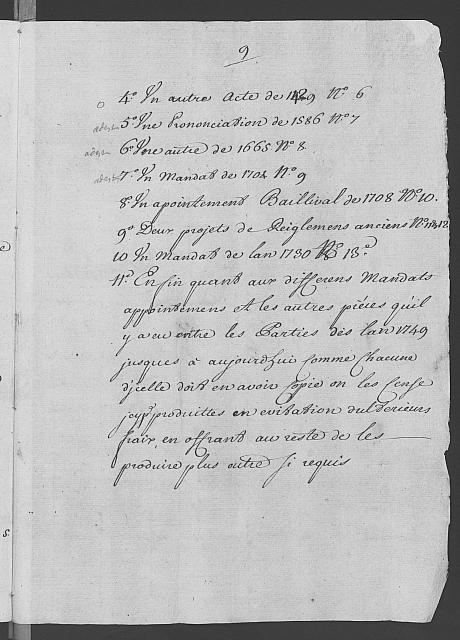 9.
o 4.º Un autre Acte de 1429 Nº. 6
5º Une Prononciation de 1586 Nº 7
6º Une autre de 1665 Nº 8
7.º Un Mandat de 1704 Nº 9
8º Un apointement Baillival de 1708 Nº 10.
9º Deux projets de Reiglemens anciens Nº 11 & 12
10 Un Mandat de lan 1730 Nº 13.º
11º Enfin quant aux differens Mandats
appointemens et les autres piéces qu'il
y a eu entre les Parties dès lan 1749
jusques à aujourdhui comme chacune
d'jcelle doit en avoir Copie on les Cense
jcy produittes en evitation dulterieurs
fraix, en offrant au reste de les
produire plus outre si requis